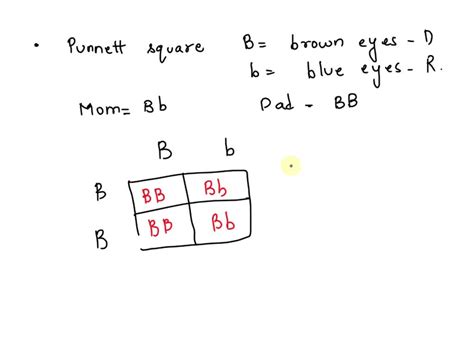 • Punnett square B = brown eyes - D
b = blue eyes - R.
Mom = Bb Dad - BB
B b
B BB Bb
B BB Bb